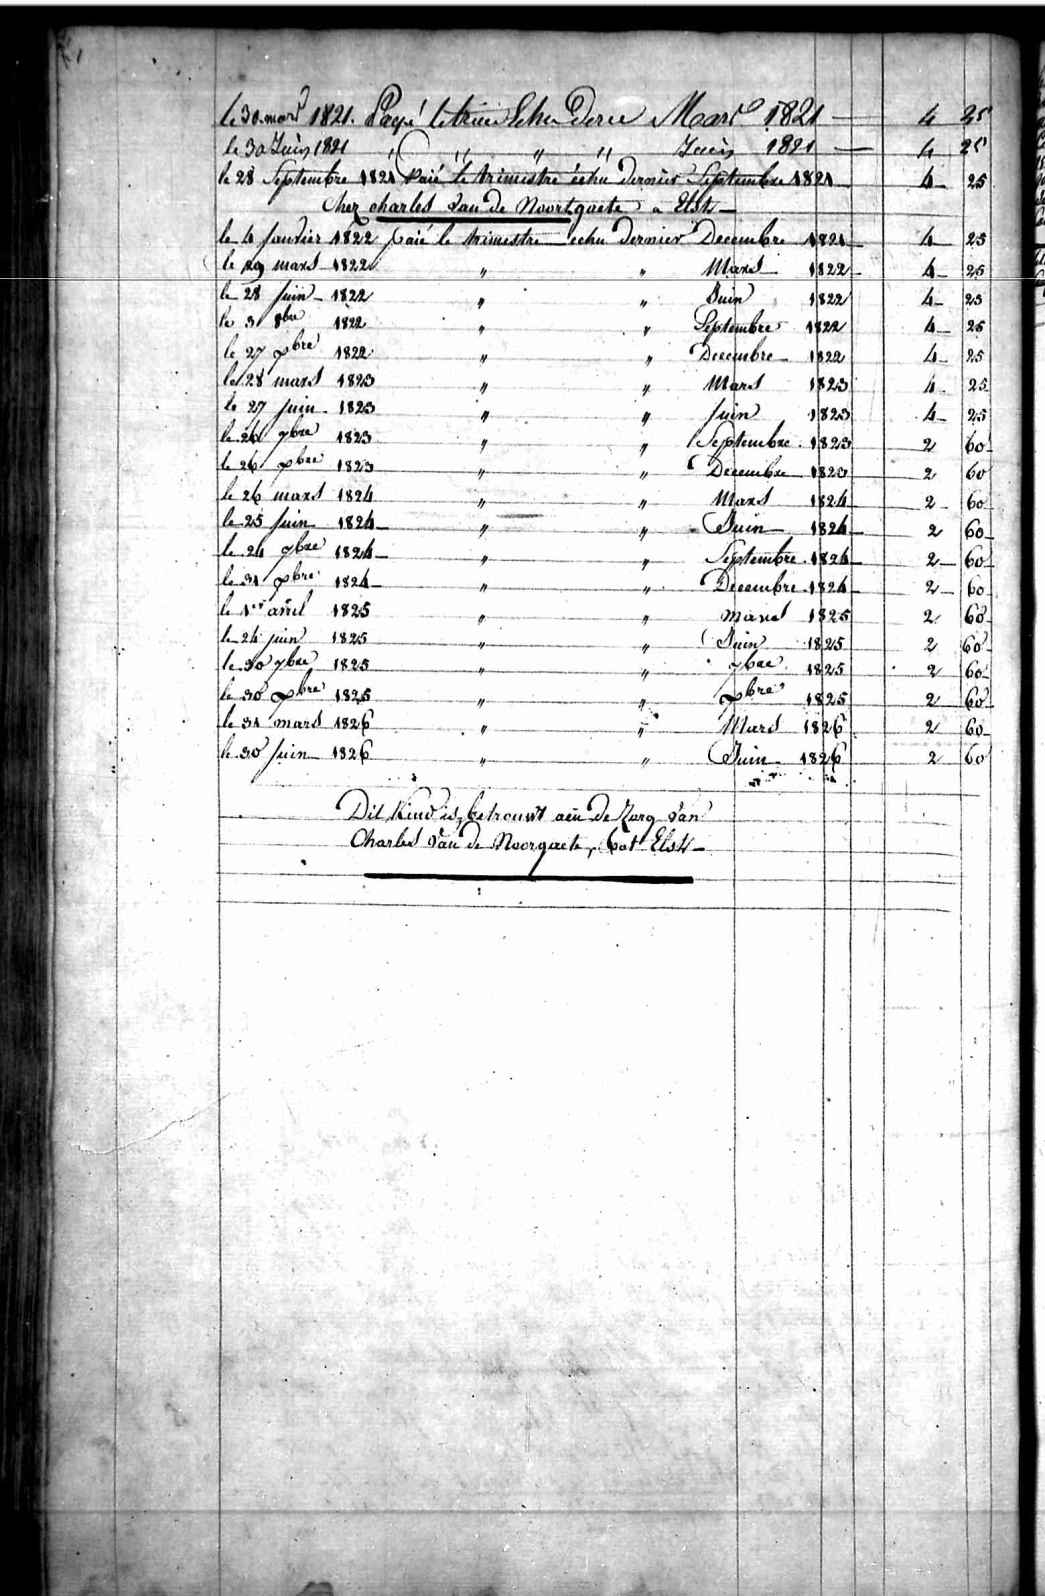 le 30 mars 1821. Payé le trim Echu Dere Mars 1821 — 4 25
le 30 Juin 1821 " " " " Juin 1821 — 4 25
le 28 Septembre 1821 paié le trimestre échu dernier Septembre 1821 4 25
Chez charles van de Noortgaete a Elst —
le 4 Janvier 1822 paié le trimestre echu dernier Decembre 1821 4 25
le 29 mars 1822 " " Mars 1822 4 25
le 28 Juin 1822 " " Juin 1822 4 25
le 3 8bre 1822 " " Septembre 1822 4 25
le 27 Xbre 1822 " " Decembre 1822 4 25
le 28 mars 1823 " " Mars 1823 4 25
le 27 Juin 1823 " " Juin 1823 4 25
le 26 7bre 1823 " " Septembre 1823 2 60
le 26 Xbre 1823 " " Decembre 1823 2 60
le 26 mars 1824 " " Mars 1824 2 60
le 25 Juin 1824 " " Juin 1824 2 60
le 24 7bre 1824 " " Septembre 1824 2 60
le 31 Xbre 1824 " " Decembre 1824 2 60
le 1er avril 1825 " " Mars 1825 2 60
le 24 juin 1825 " " Juin 1825 2 60
le 30 7bre 1825 " " 7bre 1825 2 60
le 30 Xbre 1825 " " Xbre 1825 2 60
le 31 mars 1826 " " Mars 1826 2 60
le 30 Juin 1826 " " Juin 1826 2 60
Dit Kind is betrouwt aen de Zorg van
Charles Van de Noorgaete, tot Elst —